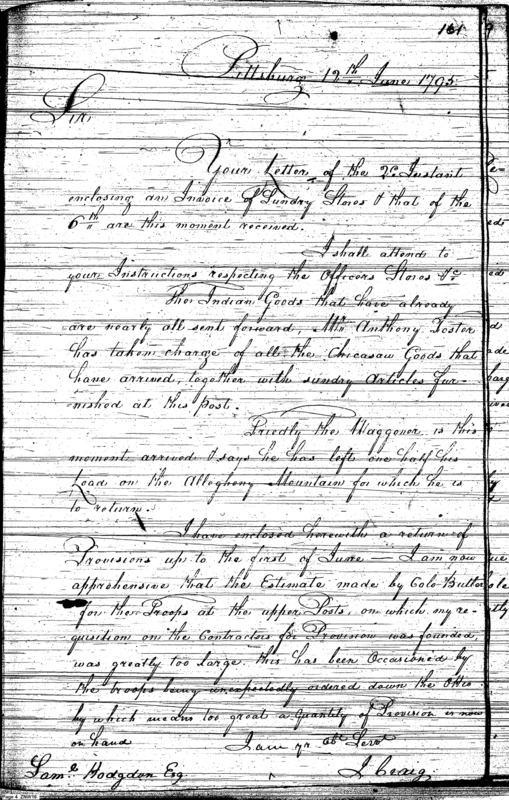 161
Pittsburg 12th June 1795
Sir
Your Letter of the 2d. Instant
enclosing an Invoice of Sundry Stores & that of the
6th are this moment received.
I shall attend to
your Instructions respecting the Officers Stores &c
The Indian Goods that have already
are nearly all sent forward, Mr. Anthony Foster
has taken charge of all the Chicasaw Goods that
have arrived, together with sundry Articles fur-
nished at this post.
the Waggoner is this
moment arrived & says he has left one half his
Load on the Allegheny Mountain for which he is
to return.
I have enclosed herewith a return of
Provisions up to the first of June — I am now
apprehensive that the Estimate made by Colo. Butler
for the Troops at the upper Posts, on which my re-
quisition on the Contractors for Provision was founded,
was greatly too large. this has been Occasioned by
the troops being unexpectedly ordered down the Ohio
by which means too great a quantity of Provision is now
on hand
I am yr. obt. Servt
Saml. Hodgdon Esq.
J Craig